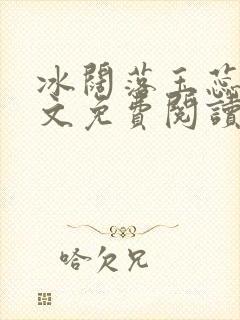 冰闊落玉蕊
文免費閱讀
哈欠兄